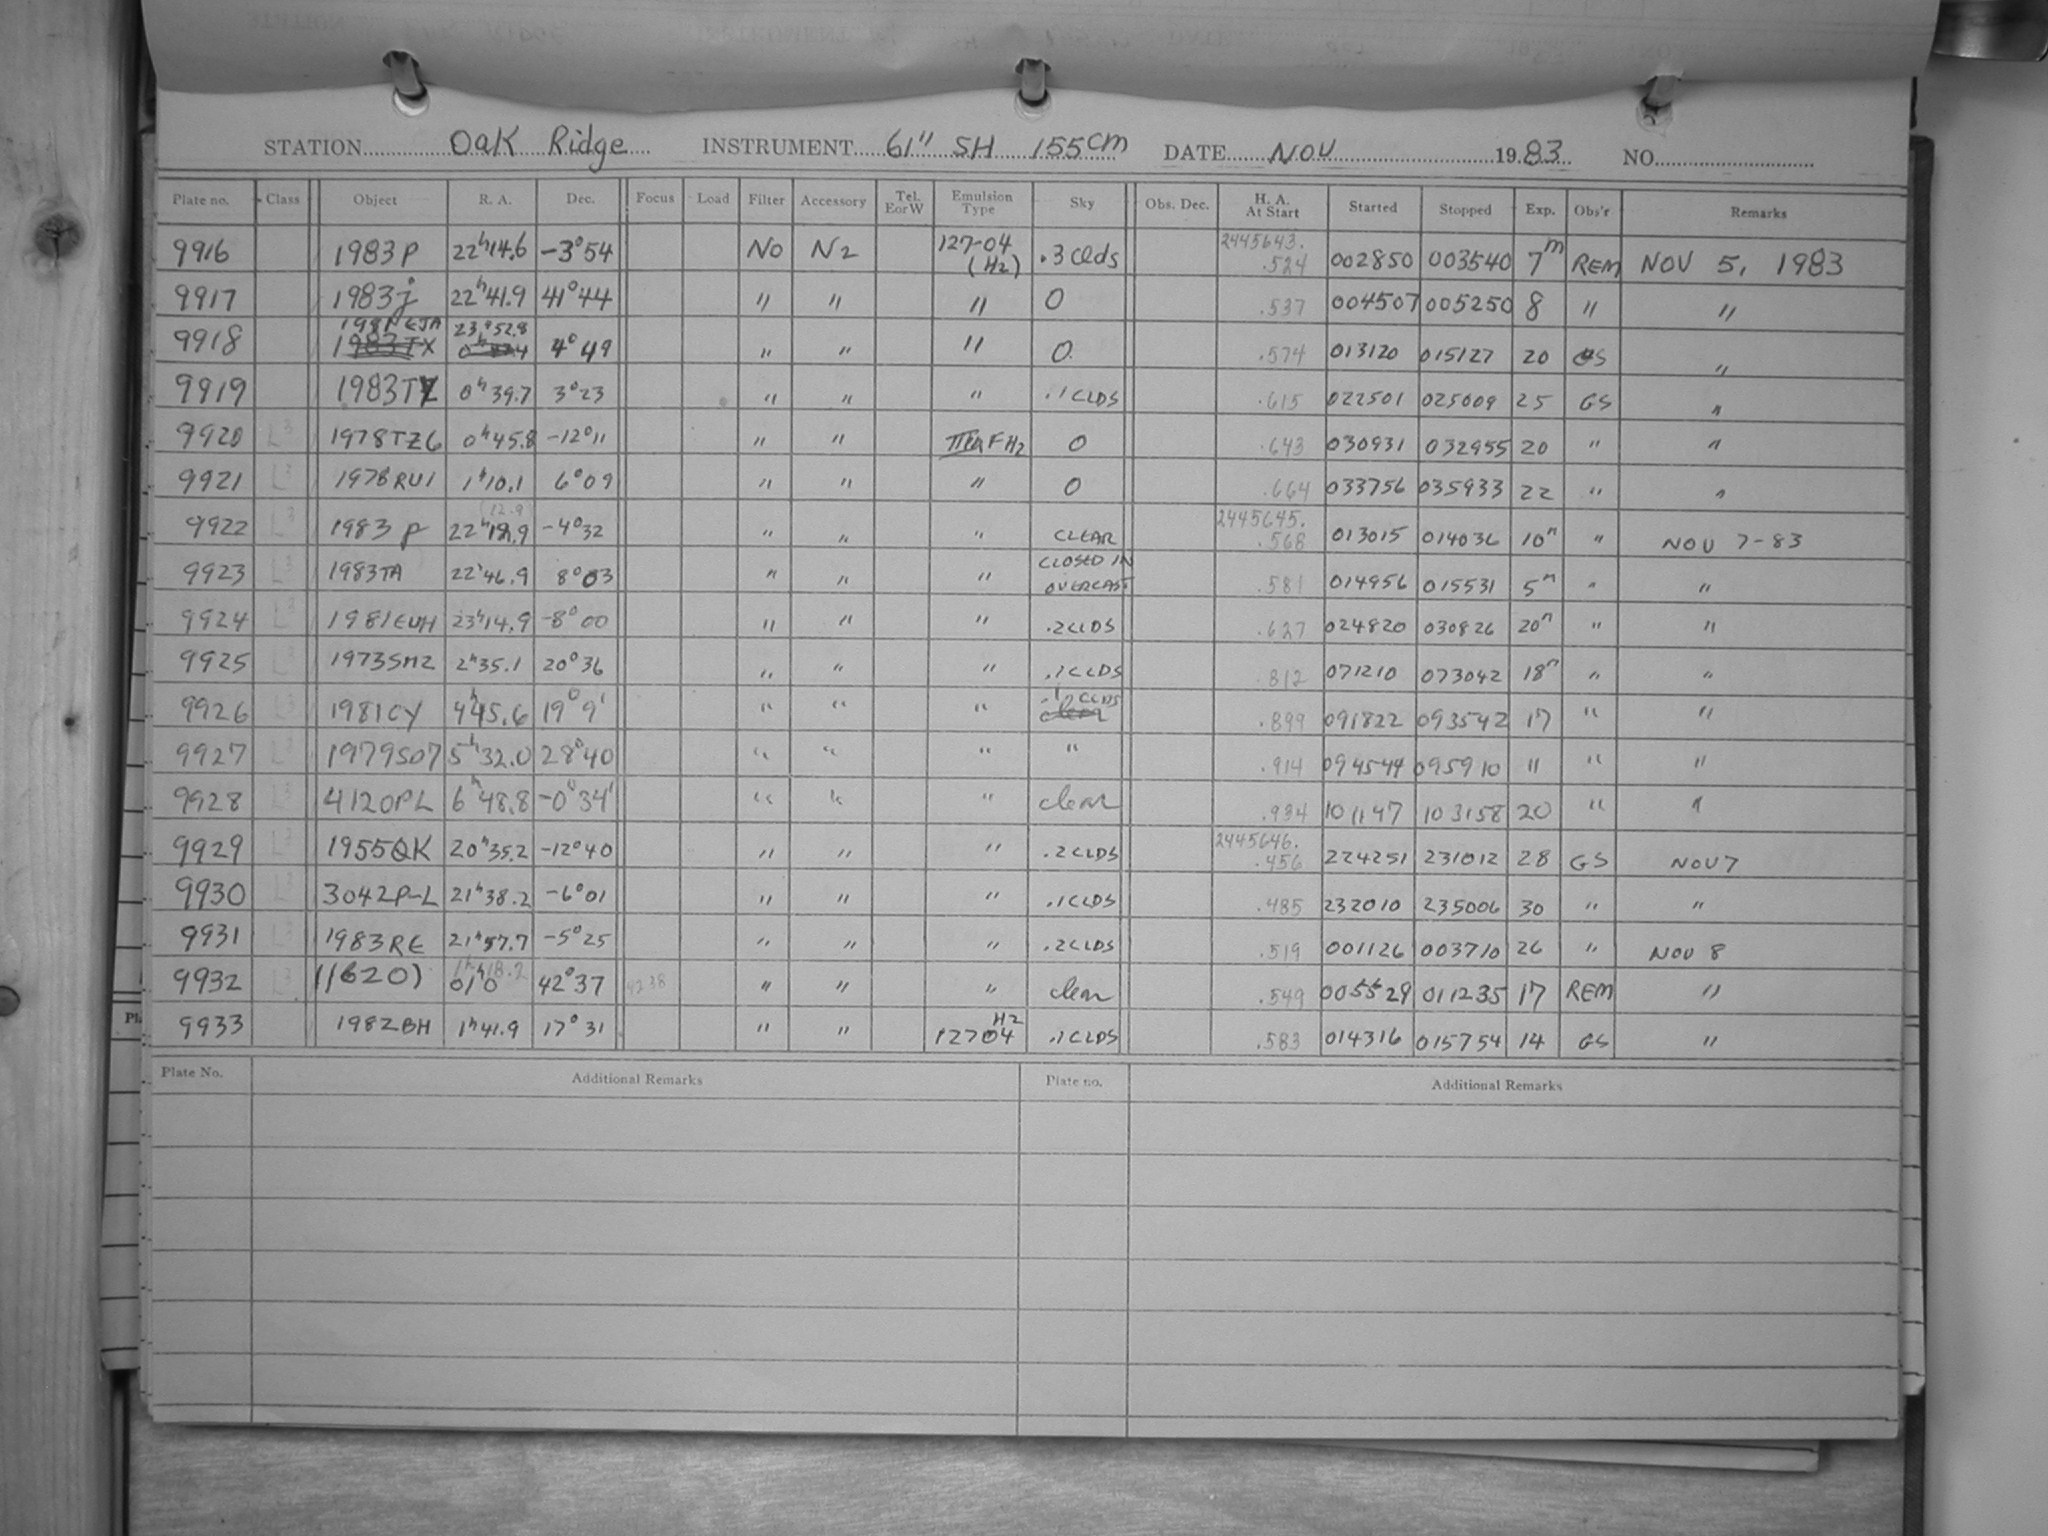 STATION Oak Ridge INSTRUMENT 61" SH 155cm DATE NOV 1983 NO.
Plate no. Class Object R. A. Dec. Focus Load Filter Accessory Tel. E or W Emulsion Type Sky Obs. Dec. H. A. At Start Started Stopped Exp. Obs'r Remarks
9916 1983P 22h14.6 -3°54 NO N2 127-04 (H2) .3 Clds 2445643. .524 002850 003540 7m REM NOV 5, 1983
9917 1983j 22h41.9 41°44 " " " 0 .537 004507 005250 8 " "
9918 23h52.8 4°49 " " " 0 .574 013120 015127 20 GS "
9919 0h39.7 3°23 " " " .1CLDS .615 022501 025009 25 GS "
9920 L3 1978TZ6 0h45.8 -12°11 " " IIIaF H2 0 .643 030931 032955 20 " "
9921 L3 1978RU1 1h10.1 6°09 " " " 0 .664 033756 035933 22 " "
9922 L3 1983 P (12.9) -4°32 " " " CLEAR 2445645. .568 013015 014036 10m " NOV 7-83
9923 L3 1983TA 22h46.9 8°03 " " " CLOSED IN OVERCAST .581 014956 015531 5m " "
9924 L3 1981EUH 23h14.9 -8°00 " " " .2CLDS .627 024820 030826 20m " "
9925 L3 1973SMZ 2h35.1 20°36 " " " .1CLDS .812 071210 073042 18m " "
9926 L3 1981CY 4h45.6 19°9' " " " CLDS .899 091822 093542 17 " "
9927 L3 1979SO7 5h32.0 28°40 " " " " .914 094544 095910 11 " "
9928 L3 4120PL 6h48.8 -0°34' " " " clear .934 101147 103158 20 " "
9929 L3 1955QK 20h35.2 -12°40 " " " .2CLDS 2445646. .456 224251 231012 28 GS NOV 7
9930 L3 3042P-L 21h38.2 -6°01 " " " .1CLDS .485 232010 235006 30 " "
9931 L3 1983RE 21h57.7 -5°25 " " " .2CLDS .519 001126 003710 26 " NOV 8
9932 L3 (1620) 1h18.2 42°37 4238 " " " clear .549 005529 011235 17 REM "
9933 1982BH 1h41.9 17°31 " " H2 12704 .1CLDS .583 014316 015754 14 GS "
Plate No. Additional Remarks Plate no. Additional Remarks